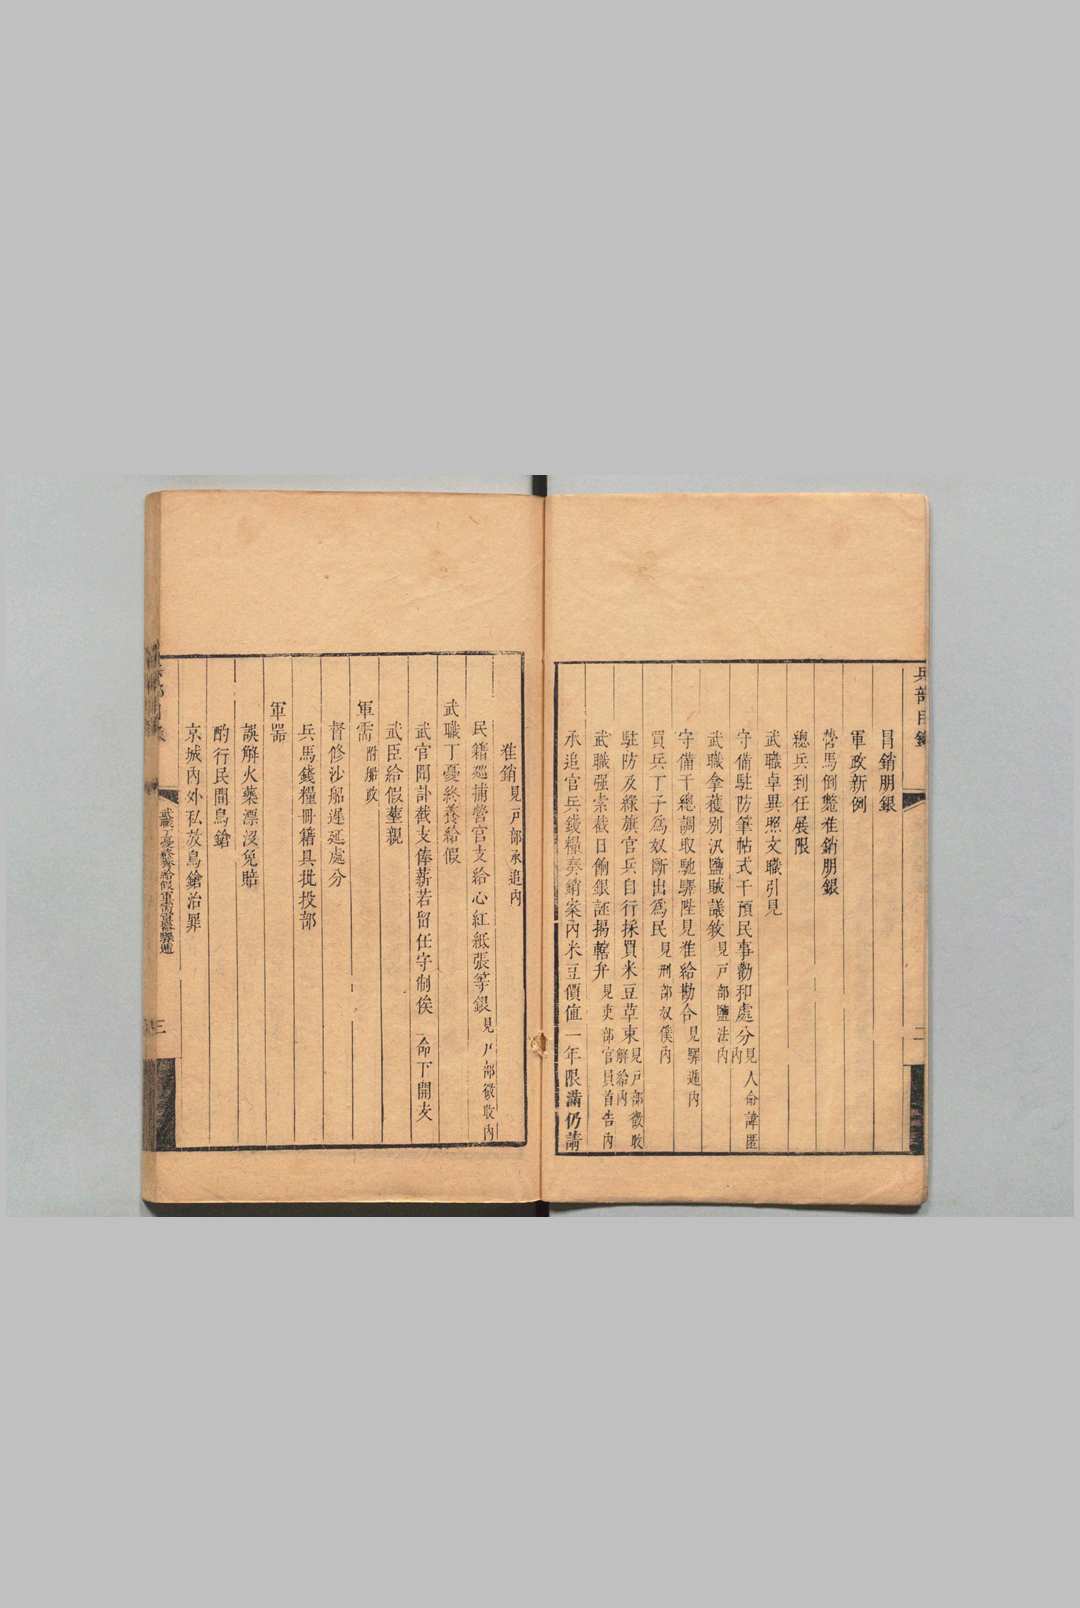 兵部目錄
二
冒銷朋銀
軍政新例
營馬倒斃准銷朋銀
總兵到任展限
武職卓異照文職引見
守備駐防筆帖式干預民事勸和處分見人命諱匿內
武職拿獲別汛鹽賊議敘見戶部鹽法內
守備千總調取馳驛陛見准給勘合見驛遞內
買兵丁子為奴斷出為民見刑部奴僕內
駐防及綠旗官兵自行採買米豆草束見戶部徵收解給內
武職強索截日俻銀誣揭轄弁見吏部官員首告內
承追官兵錢糧奏銷案內米豆價值一年限滿仍請
准銷見戶部承追內
民籍巡捕營官支給心紅紙張等銀見戶部徵收內
武職丁憂終養給假
武官聞訃截支俸薪若留任守制俟命下開支
武臣給假塟親
軍需附船政
督修沙船遲延處分
兵馬錢糧冊籍具批投部
軍器
誤解火藥漂沒免賠
酌行民間鳥鎗
京城內外私放鳥鎗治罪
武職丁憂終養給假軍需軍器驛遞
三